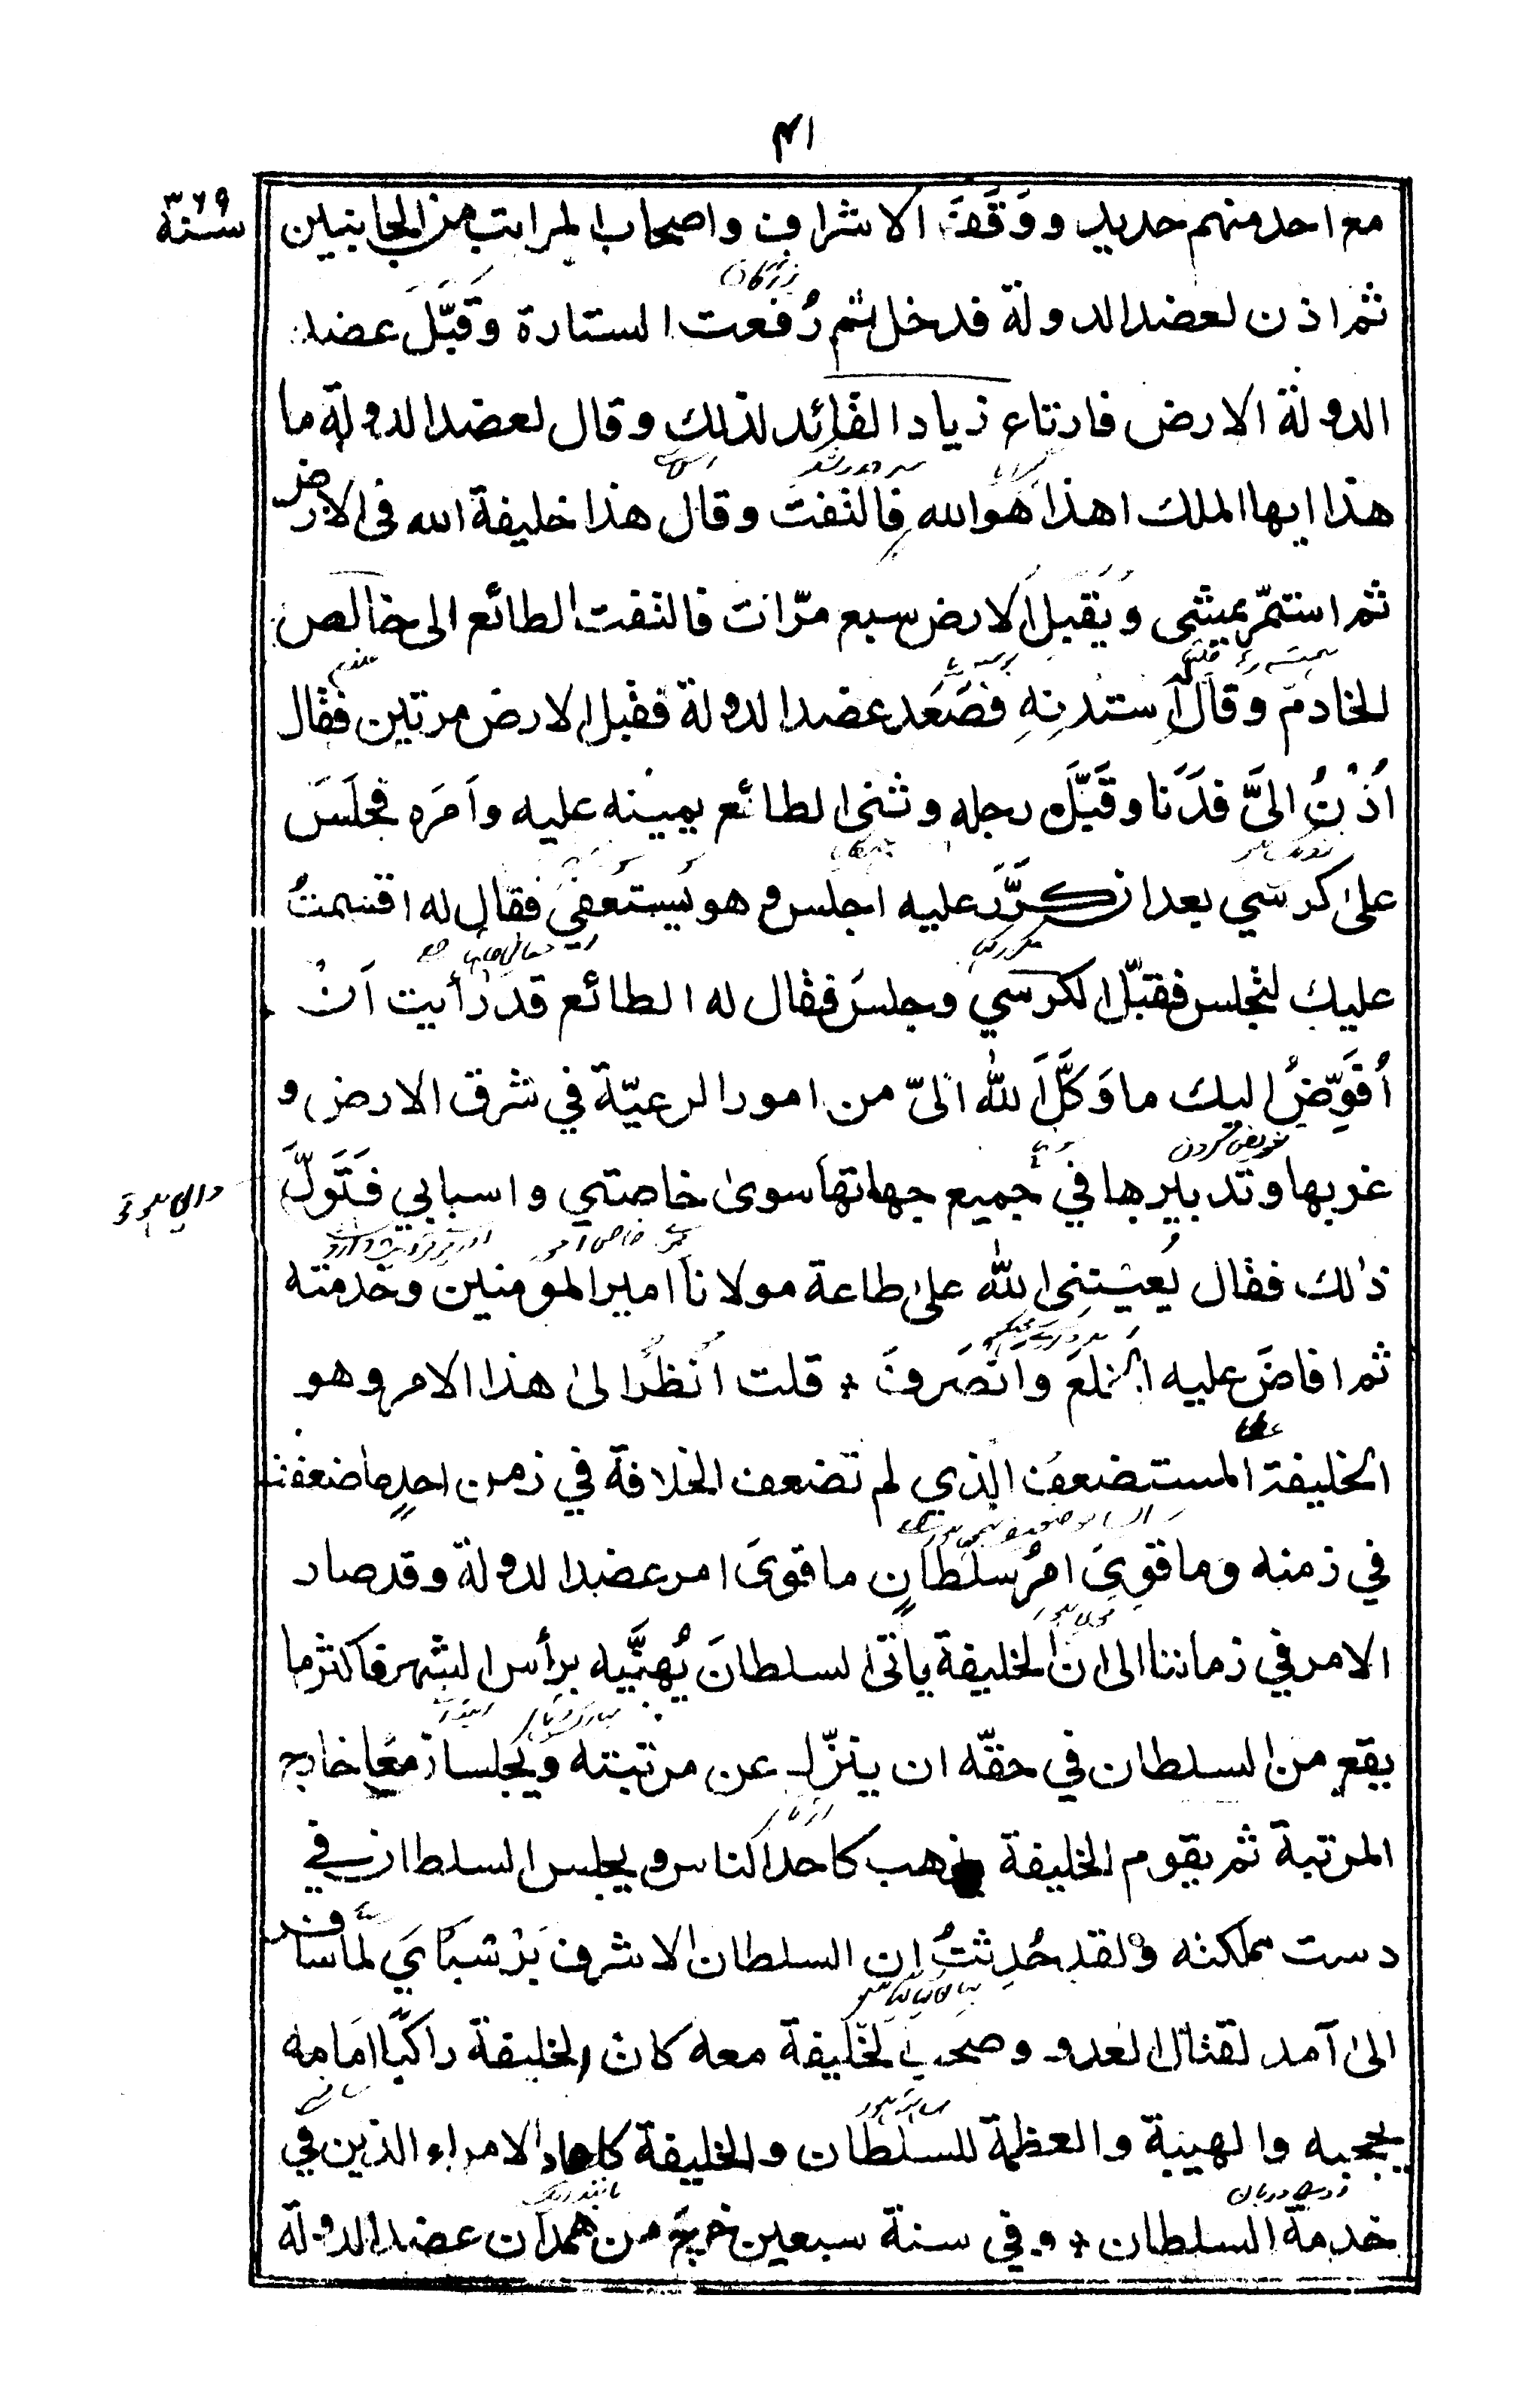 ٤١
سنة ٣٦٩
مع احد منهم حديد ووَقَفَ الاشراف واصحاب المراتب من الجانبين
ثم اذن لعضد الدولة فدخل ثم رُفعت الستارة وقَبَّلَ عضد
الدولة الارض فارتاع زياد القائد لذلك وقال لعضد الدولة ما
هذا ايها الملك اهذا هو الله فالتفت وقال هذا خليفة الله فى الارض
ثم استمرّ يمشى ويُقبل الارض سبع مرّات فالتفت الطائع الى خالص
الخادم وقال اِستدنِهِ فصَعَد عضد الدولة فقبل الارض مرتين فقال
اُدْنُ الىَّ فدَنَا وقَبَّلَ رجله وثنى الطائع يمينه عليه واَمَرَه فجلَسَ
على كرسي بعد ان كرَّرَ عليه اجلس وهو يَستعفِي فقال له اقسمتُ
عليك لتجلس فقبّل الكرسي وجلسَ فقال له الطائع قد رأيت اَنْ
اُفَوِّضَ اليك ما وَكَّلَ الله الىّ من امور الرعيّة في شرق الارض و
غربها وتدبيرها في جميع جهاتها سوى خاصتي واسبابي فَتَوَلَّ
ذلك فقال يُعيننى الله على طاعة مولانا امير المومنين وخدمته
ثم افاضَ عليه الخِلَعَ وانْصَرَفَ * قلت انظُر الى هذا الامر وهو
الخليفة المستضعف الذي لم تضعف الخلافة في زمن احدٍ ما ضعفت
في زمنه وما قوِيَ امرُ سلطانٍ ما قوىَ امر عضد الدولة وقد صار
الامر في زماننا الى ان الخليفة ياتى السلطانَ يُهنّيه برأس الشهر فاكثر ما
يقع من السلطان في حقّه ان ينزل عن مرتبته ويجلسان معًا خارج
المرتبة ثم يقوم الخليفة يذهب كاحد الناس ويجلس السلطان في
دست مملكته ولقد حُدِثتُ ان السلطان الاشرف بَرْسْبَايَ لما سافر
الى آمد لقتال العدو وصحب الخليفة معه كان الخليفة راكبًا امامه
يحجبه والهيبة والعظمة للسلطان والخليفة كاحاد الامراء الذين في
خدمة السلطان * وفي سنة سبعين خرج من همدان عضد الدولة